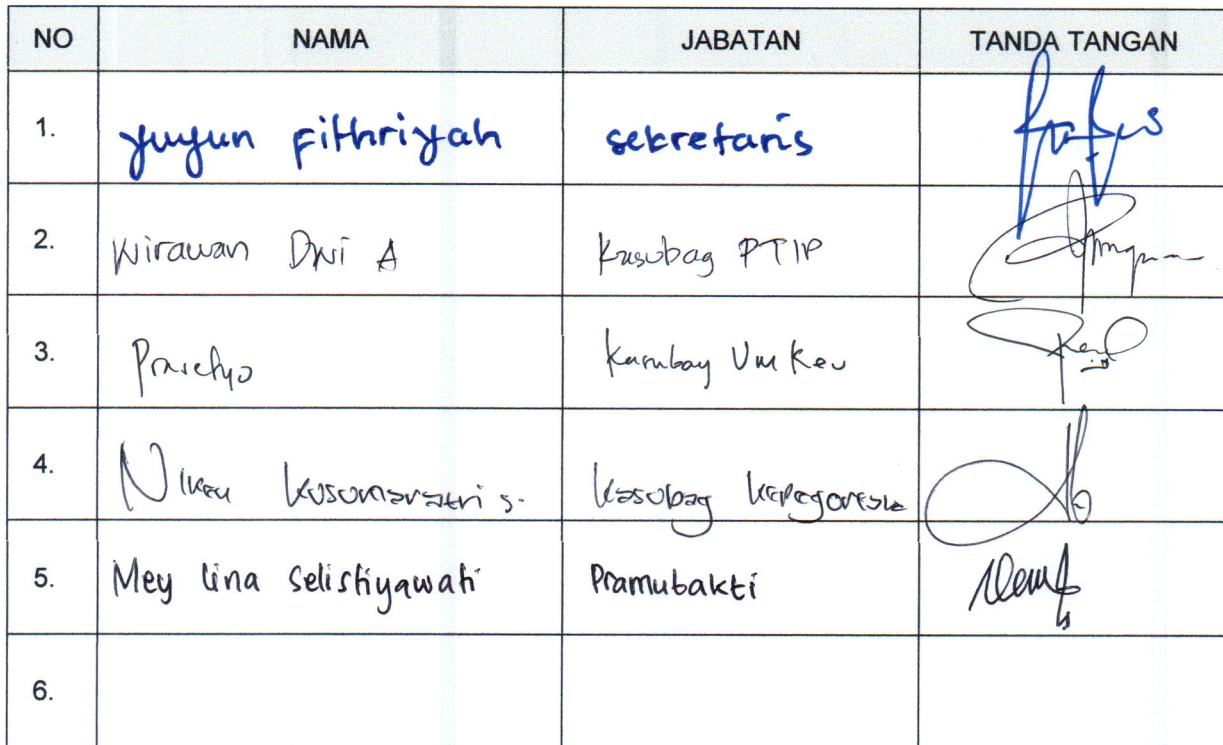 NO NAMA JABATAN TANDA TANGAN
1. Yuyun Fithriyah sekretaris
2. Wirawan Dwi A Kasubag PTIP
3. Prasetyo Kasubag Um Keu
4. Niken Kusumaratri S. Kasubag
5. Mey Lina Selistiyawati Pramubakti
6.